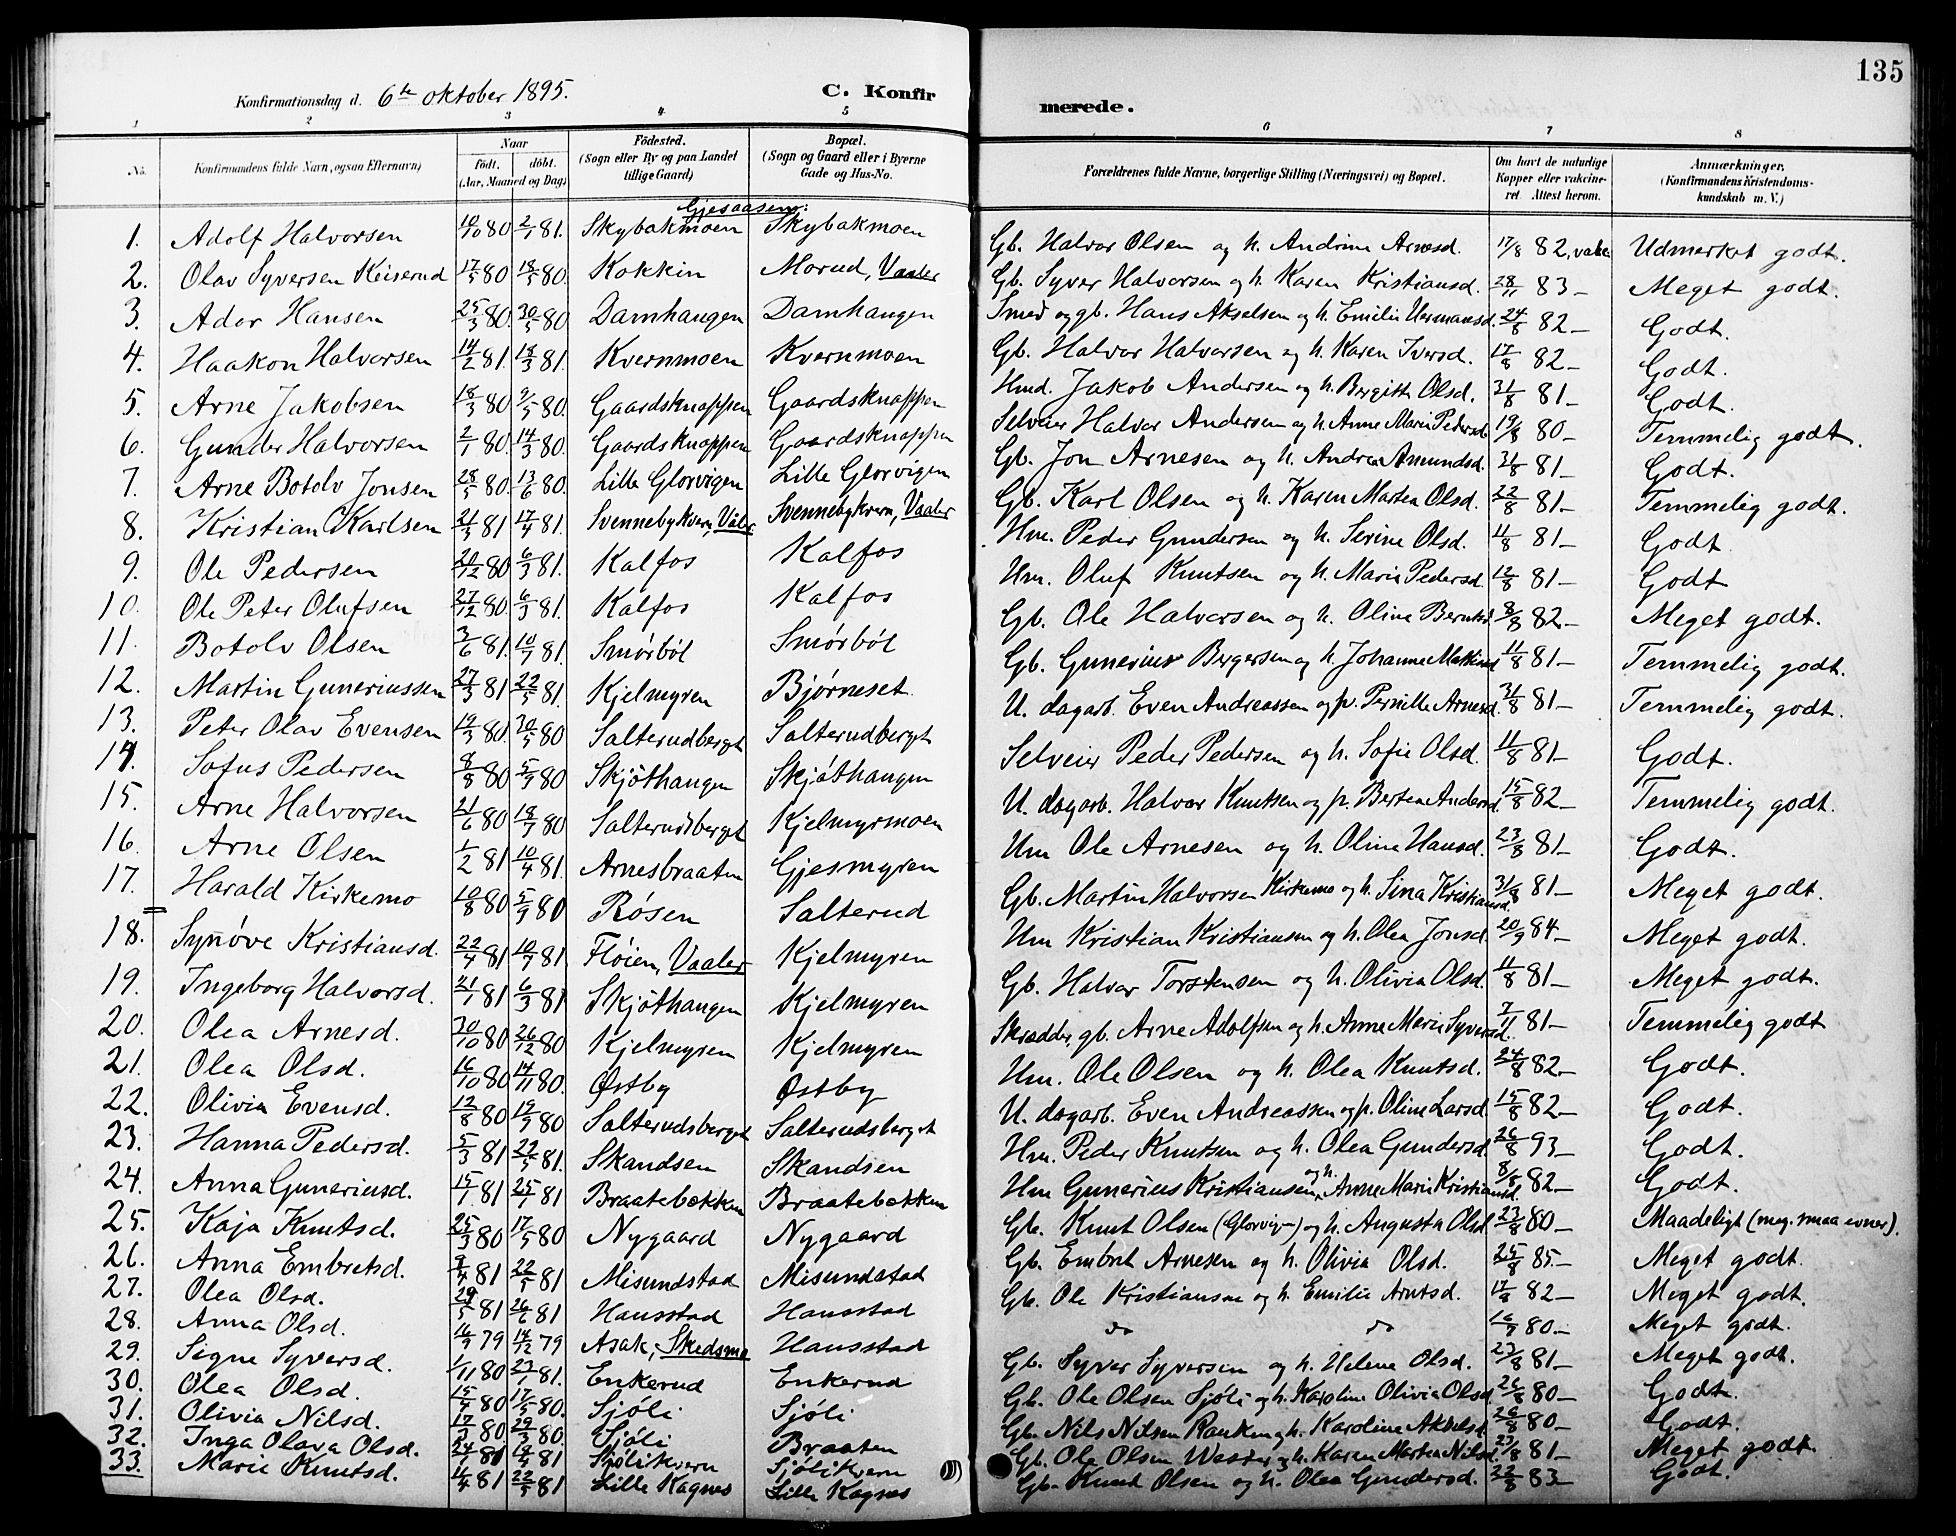 135
Konfirmationsdag d. 6te oktober 1895.
C. Konfirmerede.
1 2 3 4 5 6 7 8
No. Konfirmandens fulde Navn, ogsaa Efternavn) Naar födt. döbt. (Aar, Maaned og Dag) Födested. (Sogn eller By og paa Landet tillige Gaard) Bopæl. (Sogn og Gaard eller i Byerne Gade og Hus-No. Forældrenes fulde Navne, borgerlige Stilling (Næringsvei) og Bopæl. Om havt de naturlige Kopper eller vakcineret. Attest herom. Anmærkninger. (Konfirmandens Kristendomskundskab m. V.)
Gjesaasen:
1. Adolf Halvorsen 10/10 80 2/1 81. Skybakmoen Skybakmoen Gb. Halvor Olsen og h. Andrine Arnesd. 17/8 82, vakc Udmerket godt.
2. Olav Syversen Keiserud 17/5 80 18/5 80. Kokkin Morud, Vaaler Gb. Syver Halvorsen og h. Karen Kristiansd. 28/11 83 — Meget godt.
3. Ador Hansen 25/3 80. 30/5 80 Damhaugen Damhaugen Smed og gb. Hans Akselsen og h. Emilie Hermansd. 24/8 82 — Godt.
4. Haakon Halvorsen 14/2 81. 18/3 81. Kvernmoen Kvernmoen Gb. Halvor Halvorsen og h. Karen Iversd. 17/8 82 — Godt.
5. Arne Jakobsen 18/3 80 9/5 80. Gaardsknappen Gaardsknappen Hmd. Jakob Andersen og h. Bergitte Olsd. 31/8 81 — Godt.
6. Gunder Halvorsen 2/1 80. 14/3 80. Gaardsknappen Gaardsknappen Selveier Halvor Andersen og h. Anne Marie Pedersd. 19/8 80 — Temmelig godt.
7. Arne Botolv Jonsen 28/5 80. 13/6 80. Lille Glorvigen Lille Glorvigen Gb. Jon Arnesen og h. Andrea Amundsd. 31/8 81 — Godt.
8. Kristian Karlsen 21/3 81 17/4 81. Svennebykvern, Våler Svennebykvern, Vaaler Gb. Karl Olsen og h. Karen Martea Olsd. 22/8 81 — Temmelig godt.
9. Ole Pedersen 20/12 80 6/3 81. Kalfos Kalfos Hm. Peder Gundersen og h. Serine Olsd. 11/8 81 — Godt
10. Ole Peter Olufsen 27/12 80 6/3 81. Kalfos Kalfos Hm. Oluf Knutsen og h. Marie Pedersd. 12/8 81 — Godt
11. Botolv Olsen 3/6 81. 10/7 81. Smörböl Smörböl Gb. Ole Halvorsen og h. Oline Berntsd. 8/8 82 — Meget godt.
12. Martin Guneriussen 27/3 81 22/5 81. Kjelmyren Bjørneset. Gb. Gunerius Bergersen og h. Johanne 11/8 81 — Temmelig godt.
13. Peter Olav Evensen 19/3 80. 30/5 80 Salterudberget Salterudberget U. dagarb. Even Andreassen og p. Pernille Arnesd. 31/8 81 — Temmelig godt.
14. Sofus Pedersen 8/8 80 5/9 80 Skjöthaugen Skjöthaugen Selveier Peder Pedersen og h. Sofie Olsd. 11/8 81 — Godt.
15. Arne Halvorsen 21/6 80 18/7 80 Salterudsberget Kjelmyrmoen U. dagarb. Halvor Knutsen og p. Bertea Andersd. 15/8 82 — Temmelig godt.
16. Arne Olsen 1/2 81 10/4 81. Arnesbraaten Gjesmyren Hm Ole Arnesen og h. Oline Hansd. 23/8 81 — Godt.
17. Harald Kirkemo 10/8 80 5/9 80 Røsen Salterud Gb. Martin Halvorsen Kirkemo og h. Sina Kristiansd. 31/8 81 — Meget godt.
18. Synöve Kristiansd. 22/4 81 10/7 81. Flöien, Vaaler Kjelmyren Hm Kristian Kristiansen og h. Olea Jonsd. 20/9 84 — Meget godt.
19. Ingeborg Halvorsd. 21/1 81 6/3 81 Skjöthaugen Kjelmyren Gb. Halvor Torstensen og h. Olivia Olsd. 11/8 81 — Meget godt.
20. Olea Arnesd. 30/10 80 26/12 80 Kjelmyren Kjelmyren Skrædder, gb. Arne Adolfsen og h. Anne Marie Syversd. 7/11 81 — Temmelig godt
21. Olea Olsd. 16/10 80 14/11 80. Østby Østby Hm. Ole Olsen og h. Olea Knutsd. 24/8 82 — Godt.
22. Olivia Evensd. 12/8 80 19/9 80 Salterudsberget Salterudsberget U. dagarb. Even Andreassen og p. Oline Larsd. 15/8 82 — Godt.
23. Hanna Pedersd. 5/3 81 22/5 81. Skandsen Skandsen Hm. Peder Knutsen og h. Olea Gundersd. 26/8 93 — Godt.
24. Anna Guneriusd. 15/1 81 25/1 81 Braatebækken Braatebækken Hm Gunerius Kristiansen og h. Anne Marie Kristiansd. 8/8 82 — Godt.
25. Kaja Knutsd. 25/3 80 17/5 80 Nygaard Nygaard Gb. Knut Olsen (Glorvig-) og h. Augusta Olsd. 23/8 80 — Maadeligt (meg. smaa evner).
26. Anna Embretsd. 8/4 81 22/5 81 Misundstad Misundstad Gb. Embret Arnesen og h. Olivia Olsd. 25/8 85 — Meget godt.
27. Olea Olsd. 29/5 81 26/6 81 Hansstad Hansstad Gb. Ole Kristiansen og h. Emilie Arntsd. 17/8 82 — Meget godt.
28. Anna Olsd. 16/9 79 14/12 79 Asak, Skedsmo Hansstad do do 16/7 80 — Meget godt.
29. Signe Syversd. 1/11 80 23/1 81. Enkerud Enkerud Gb. Syver Syversen og h. Helene Olsd. 23/8 81 — Meget godt.
30. Olea Olsd. 15/4 80 17/5 80. Sjöli Sjöli Gb. Ole Olsen Sjöli og h. Karoline Olivia Olsd. 26/8 80 — Godt.
31. Olivia Nilsd. 17/3 80 29/3 80 Sjöli Braaten Gb. Nils Nilsen Ranken og h. Karoline Akselsd. 26/8 80 — Godt.
32. Inga Olava Olsd. 24/1 81 18/4 81 Sjölikvern Sjölikvern Gb. Ole Olsen og h. Karen Martea Nilsd. 23/8 81 — Meget godt.
33. Marie Knutsd. 4/4 81 22/5 81 Lille Kagnes Lille Kagnes Gb. Knut Olsen og h. Olea Gundersd. 22/8 83 — Godt.